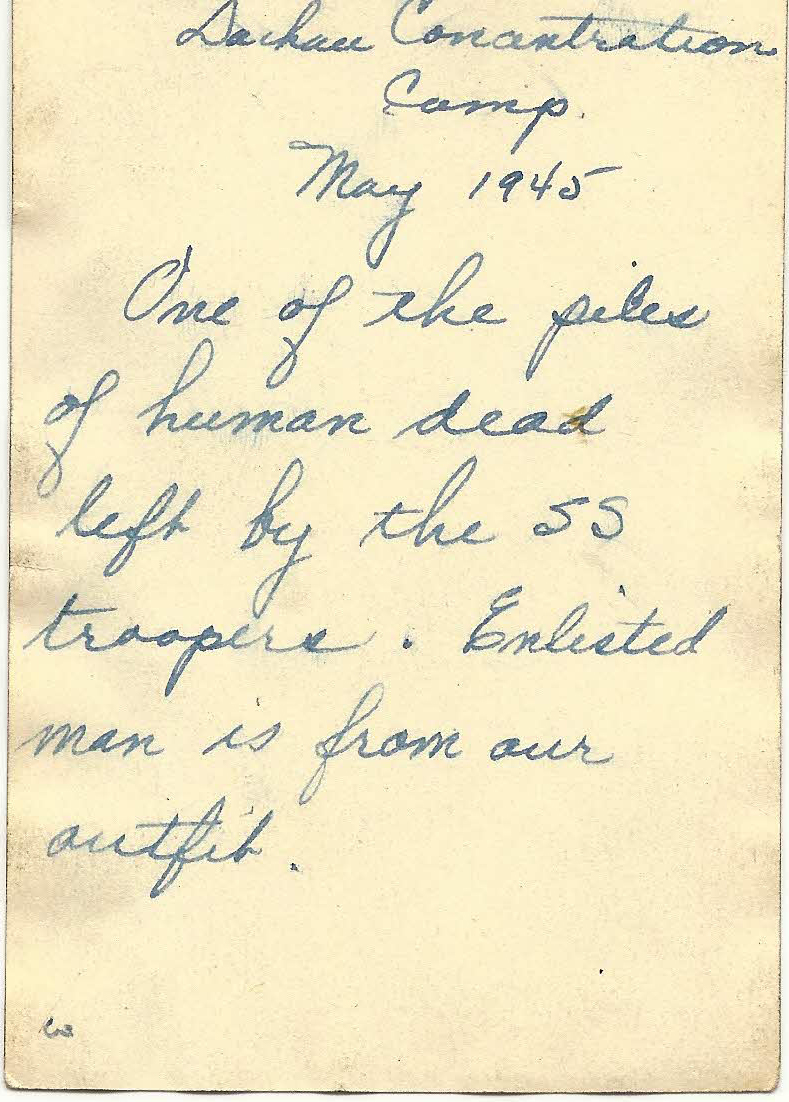 Dachau Concentration
Camp.
May 1945
One of the piles
of human dead
left by the SS
troopers. Enlisted
man is from our
outfit.